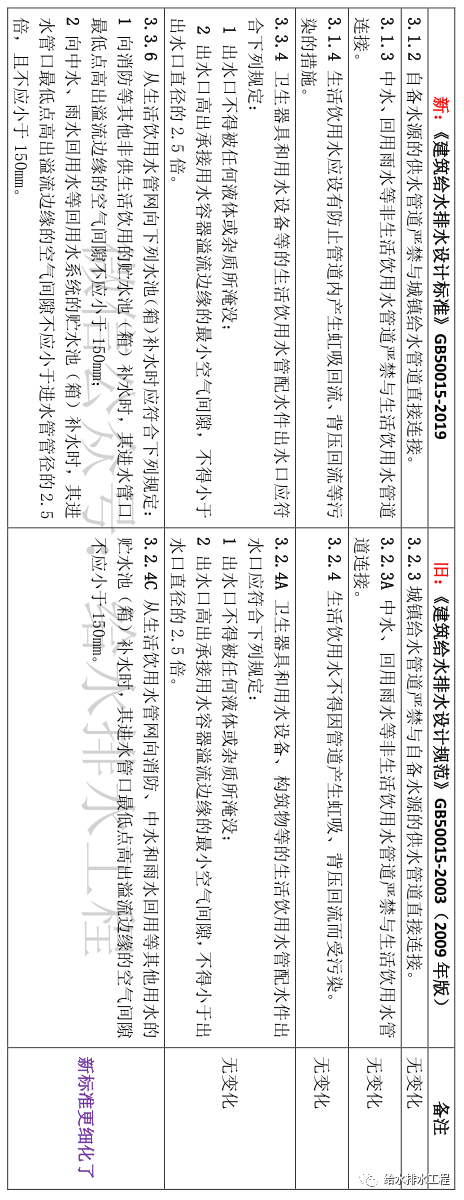 新：《建筑给水排水设计标准》GB50015-2019
旧：《建筑给水排水设计规范》GB50015-2003（2009 年版）
备注
3.1.2 自备水源的供水管道严禁与城镇给水管道直接连接。
3.2.3 城镇给水管道严禁与自备水源的供水管道直接连接。
无变化
3.1.3 中水、回用雨水等非生活饮用水管道严禁与生活饮用水管道
连接。
3.2.3A 中水、回用雨水等非生活饮用水管道严禁与生活饮用水管
道连接。
无变化
3.1.4 生活饮用水应设有防止管道内产生虹吸回流、背压回流等污
染的措施。
3.2.4 生活饮用水不得因管道产生虹吸、背压回流而受污染。
无变化
3.3.4 卫生器具和用水设备等的生活饮用水管配水件出水口应符
合下列规定：
1 出水口不得被任何液体或杂质所淹没；
2 出水口高出承接用水容器溢流边缘的最小空气间隙，不得小于
出水口直径的 2.5 倍。
3.2.4A 卫生器具和用水设备、构筑物等的生活饮用水管配水件出
水口应符合下列规定：
1 出水口不得被任何液体或杂质所淹没；
2 出水口高出承接用水容器溢流边缘的最小空气间隙，不得小于出
水口直径的 2.5 倍。
无变化
3.3.6 从生活饮用水管网向下列水池（箱）补水时应符合下列规定：
1 向消防等其他非供生活饮用的贮水池（箱）补水时，其进水管口
最低点高出溢流边缘的空气间隙不应小于 150mm；
2 向中水、雨水回用水等回用水系统的贮水池（箱）补水时，其进
水管口最低点高出溢流边缘的空气间隙不应小于进水管管径的 2.5
倍，且不应小于 150mm。
3.2.4C 从生活饮用水管网向消防、中水和雨水回用等其他用水的
贮水池（箱）补水时，其进水管口最低点高出溢流边缘的空气间隙
不应小于 150mm。
新标准更细化了
微信公众号：给水排水工程
给水排水工程